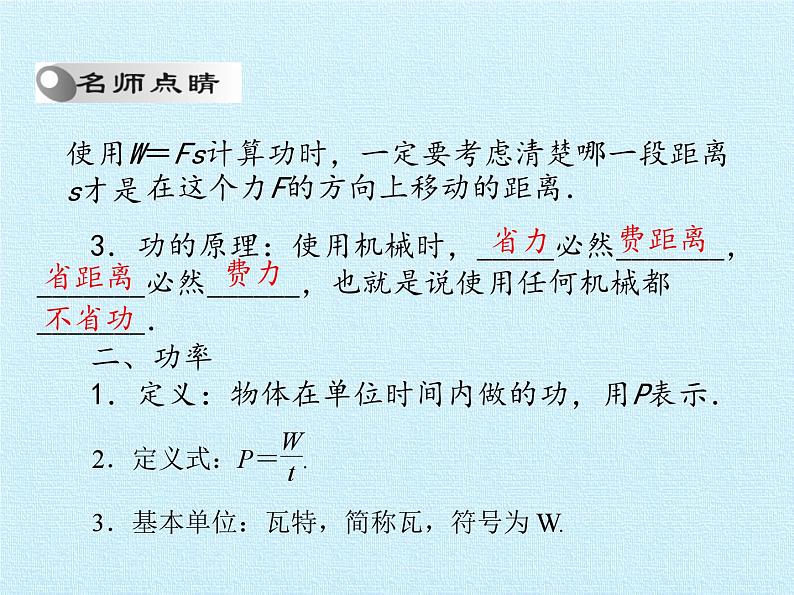 名师点睛
使用W＝Fs计算功时，一定要考虑清楚哪一段距离
s才是在这个力F的方向上移动的距离．
3．功的原理：使用机械时，省力必然费距离，
省距离必然费力，也就是说使用任何机械都
不省功．
二、功率
1．定义：物体在单位时间内做的功，用P表示．
2．定义式：P＝W/t.
3．基本单位：瓦特，简称瓦，符号为 W.